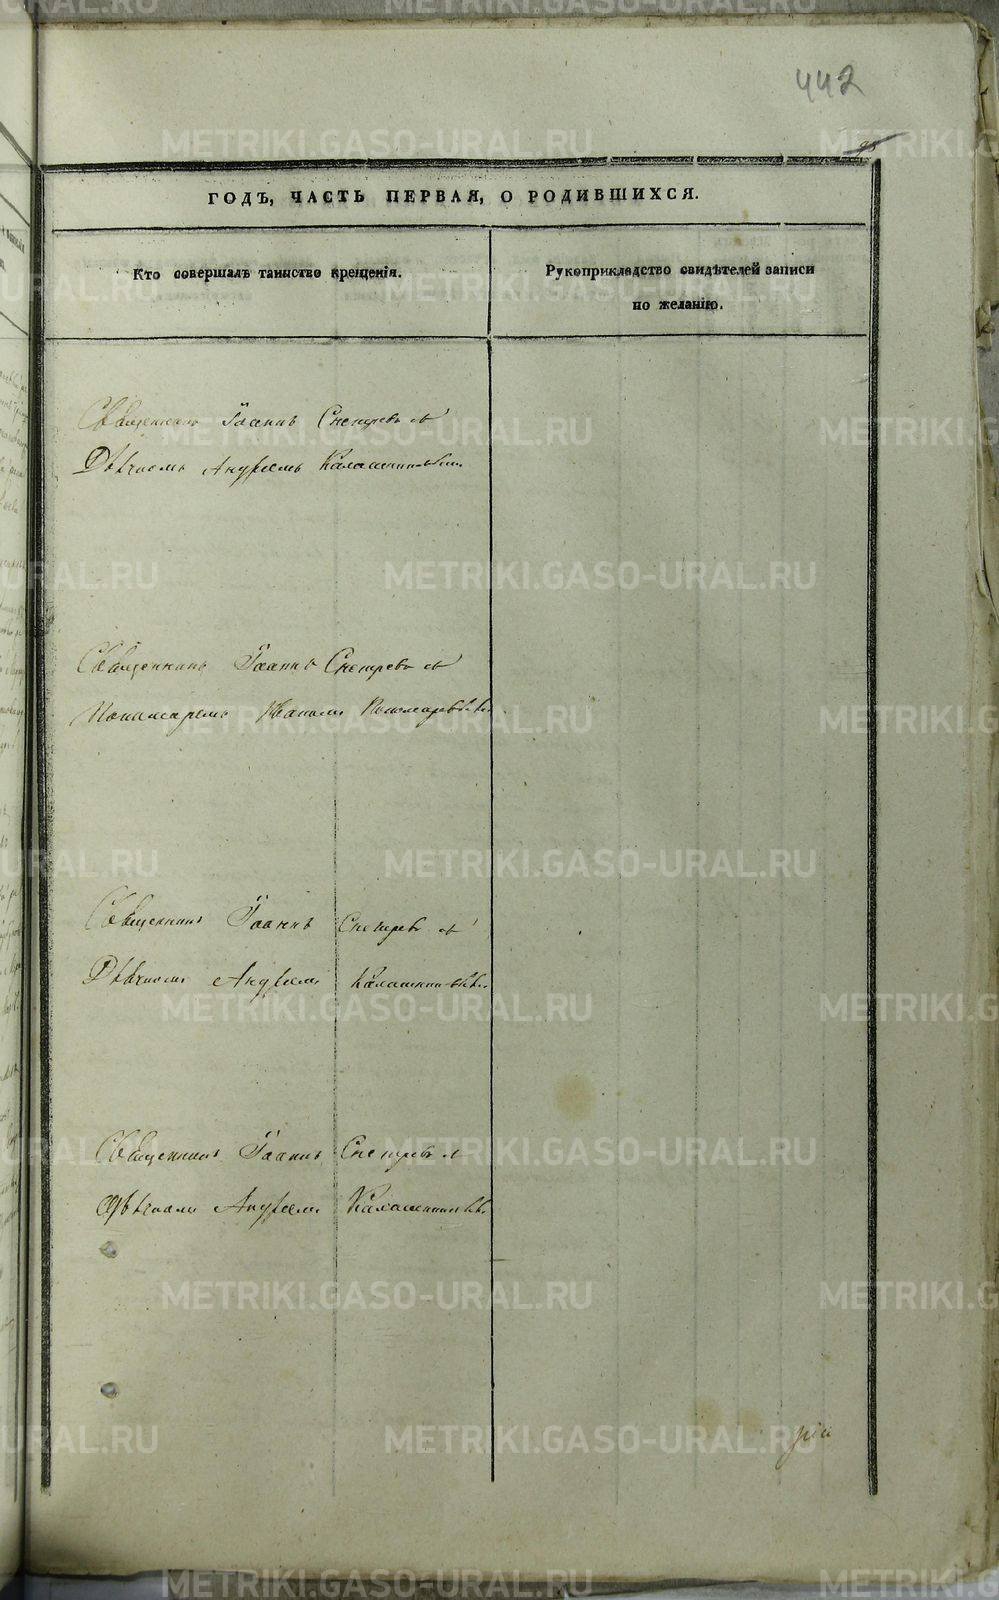 442
ГОДЪ, ЧАСТЬ ПЕРВАЯ, О РОДИВШИХСЯ.
Кто совершалъ таинство крещенія.
Рукоприкладство свидѣтелей записи
по желанію.
Священникъ Іоаннъ Снегирев съ
Дьячкомъ Андреемъ Калашниковым
Священникъ Іоаннъ Снегирев съ
Пономаремъ Иваномъ Пономаревым
Священникъ Іоаннъ Снегирев съ
Дьячкомъ Андреемъ Калашниковым
Священникъ Іоаннъ Снегирев съ
Дьячкомъ Андреемъ Калашниковым
METRIKI.GASO-URAL.RU